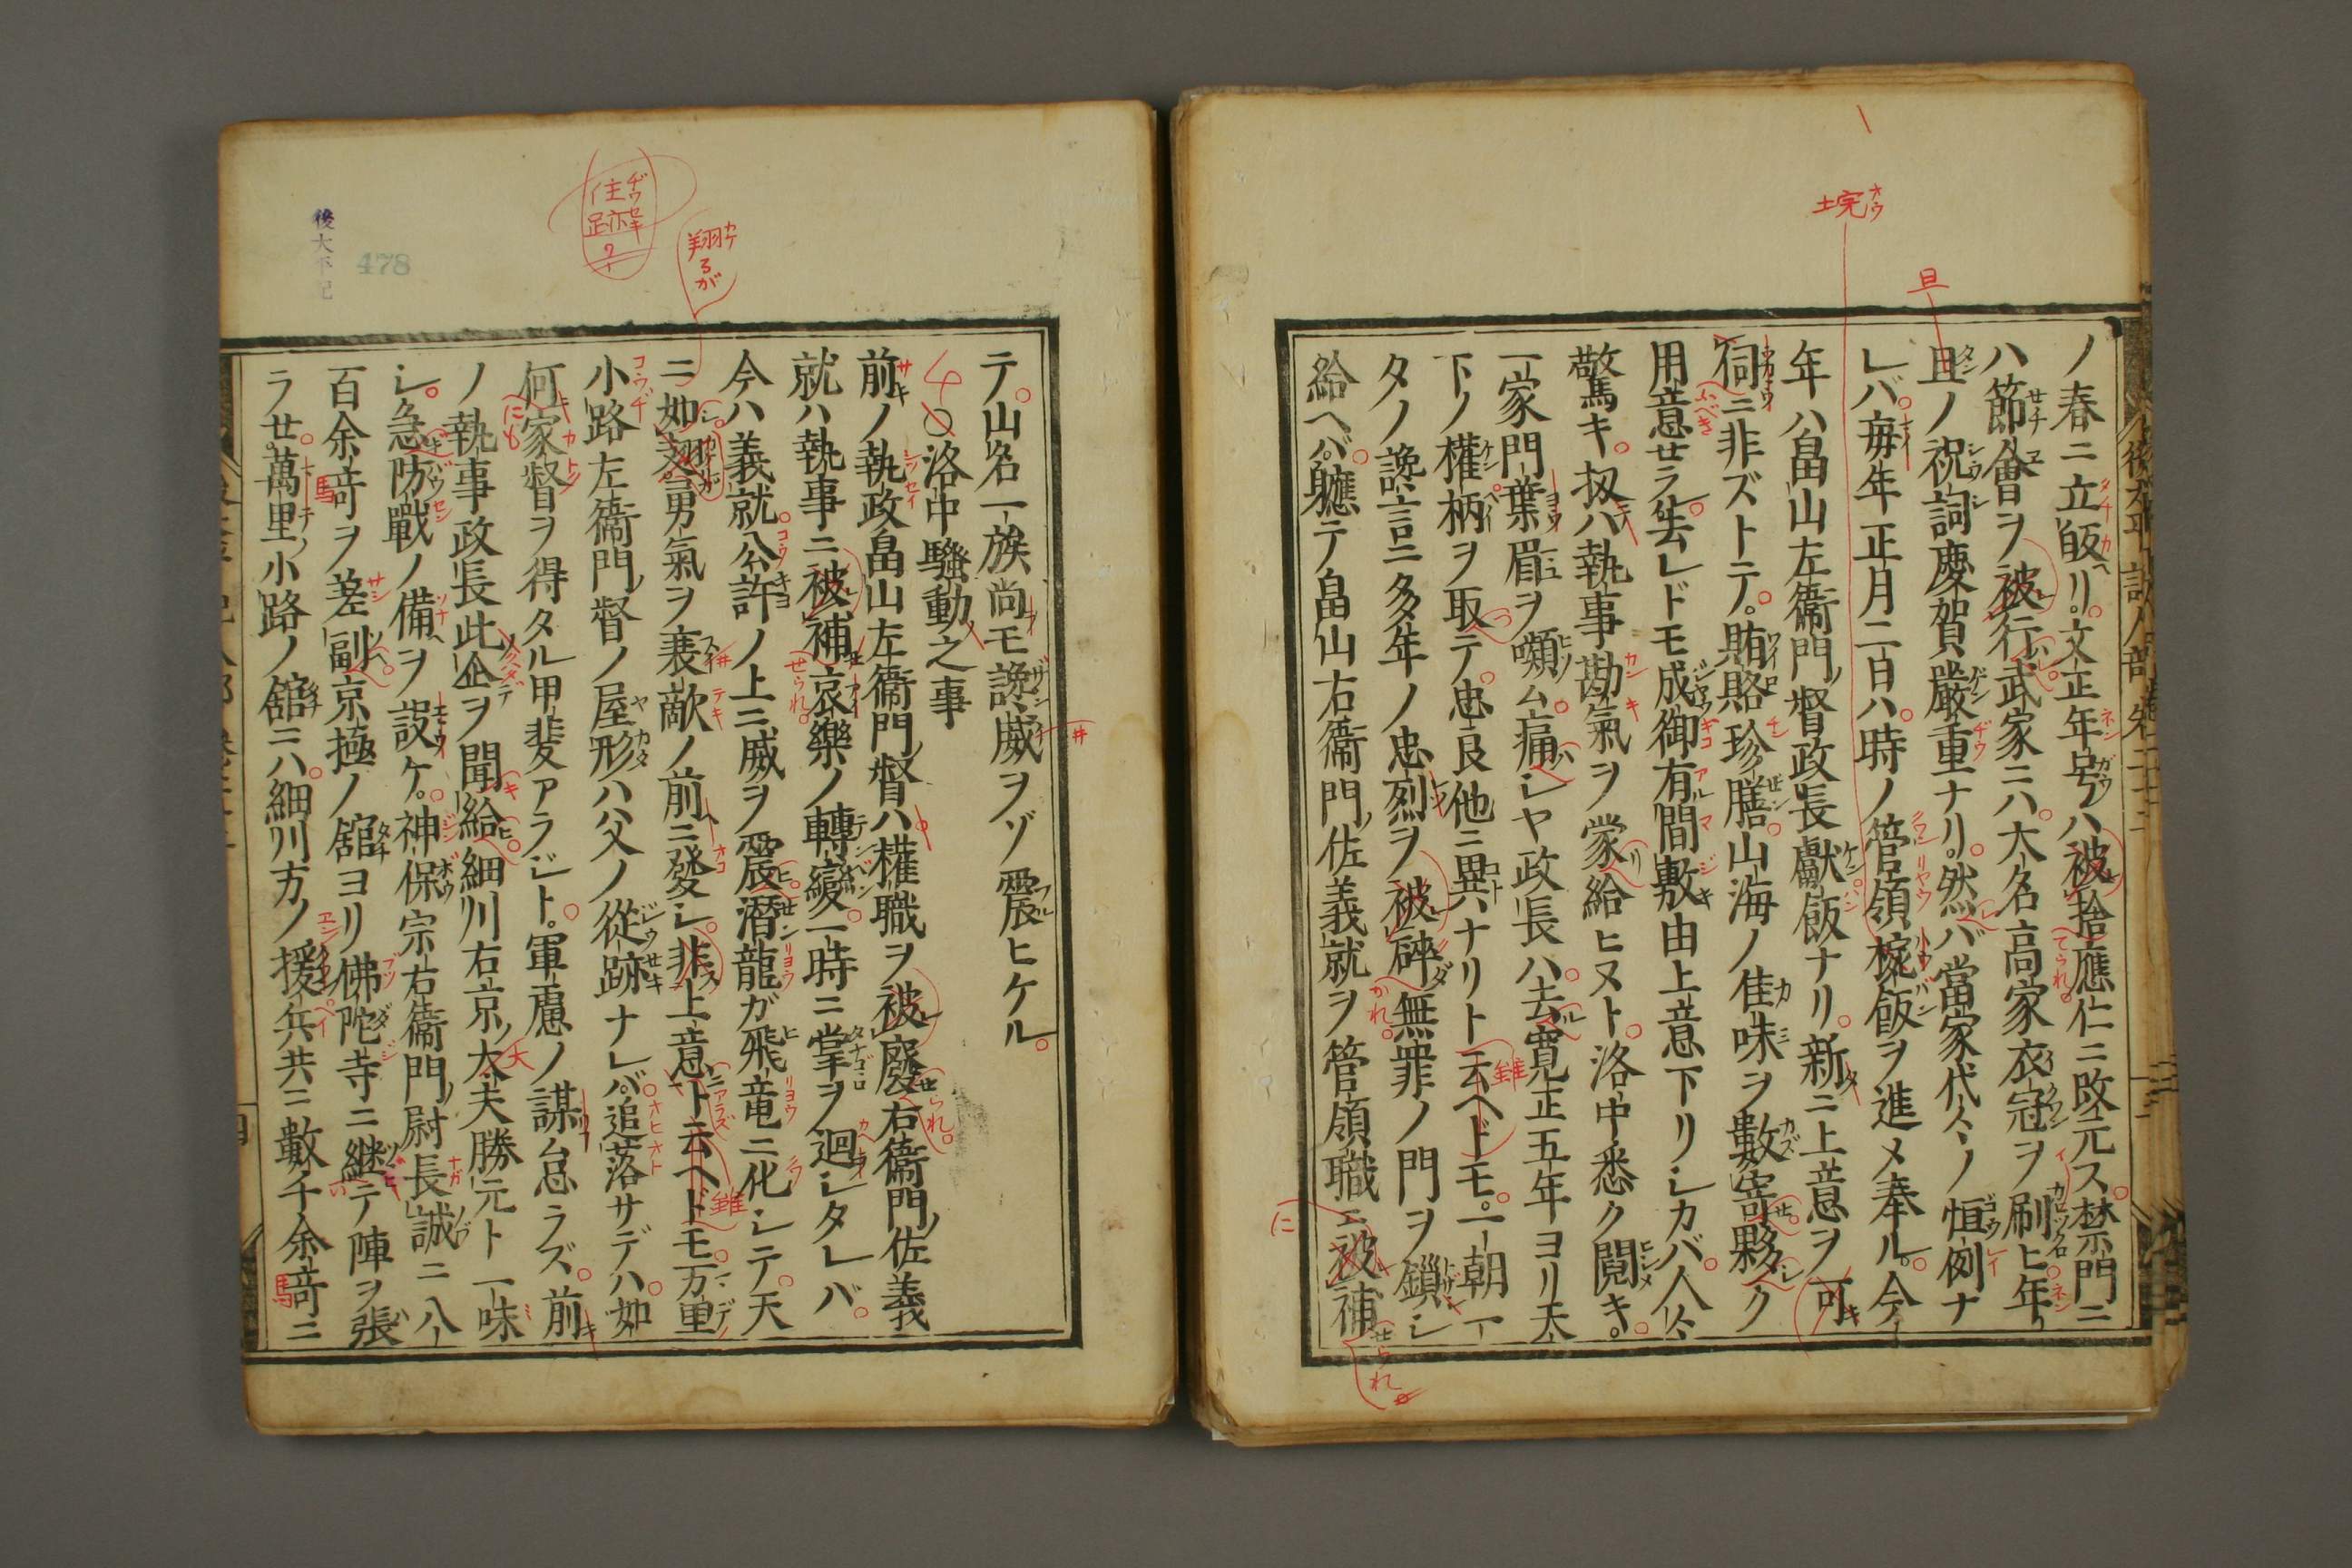 ノ春ニ立皈リ。文正年号ハ被捨應仁ニ改元ス。禁門ニ
ハ節會ヲ被行武家ニハ。大名高家衣冠ヲ刷ヒ年
旦ノ祝詞慶賀嚴重ナリ。然バ當家代々ノ恒例ナ
レバ。毎年正月二日ハ。時ノ管領椀飯ヲ進メ奉ル。今
年ハ畠山左衞門督政長獻飯ナリ。新ニ上意ヲ可
伺ニ非ズトテ。賄賂珍膳。山海ノ佳味ヲ數寄夥ク
用意セラ。去レドモ成御有間敷由上意下リシカバ。人々
驚キ。扨ハ執事勘氣ヲ蒙給ヒヌト。洛中悉ク閲キ。
一家門葉眉ヲ嚬ム。痛シヤ政長ハ。去寛正五年ヨリ天
下ノ權柄ヲ取テ。忠良他ニ異ナリト云ヘドモ。一朝一
タノ讒言ニ多年ノ忠烈ヲ被碎無罪ノ門ヲ鎖シ
給ヘバ。軈テ畠山右衞門佐義就ヲ管領職ニ被補
テ。山名一族尚モ讒威ヲゾ震ヒケル。
○洛中騒動之事
前ノ執政畠山左衞門督ハ權職ヲ被廢右衞門佐義
就ハ執事ニ被補哀樂ノ轉變。一時ニ掌ヲ迴シタレバ。
今ハ義就公許ノ上ニ威ヲ震潜龍ガ飛竜ニ化シテ。天
ニ如翔勇氣ヲ襄敵ノ前ニ發シ。非上意ト云ヘドモ。万里
小路左衞門督ノ屋形ハ父ノ從跡ナレバ。追落サデハ。如
何家督ヲ得タル甲斐アラジト。軍慮ノ謀怠ラズ。前
ノ執事政長此企ヲ聞給細川右京大夫勝元ト一味
シ。急防戰ノ備ヲ設ケ。神保宗右衞門尉長誠ニ八
百余竒ヲ差副。京極ノ舘ヨリ佛陀寺ニ繼テ陣ヲ張
ラセ。萬里小路ノ舘ニハ。細川方ノ援兵共三數千余竒ニ
後太平記
478
住跡?
翔るが
垸
旦